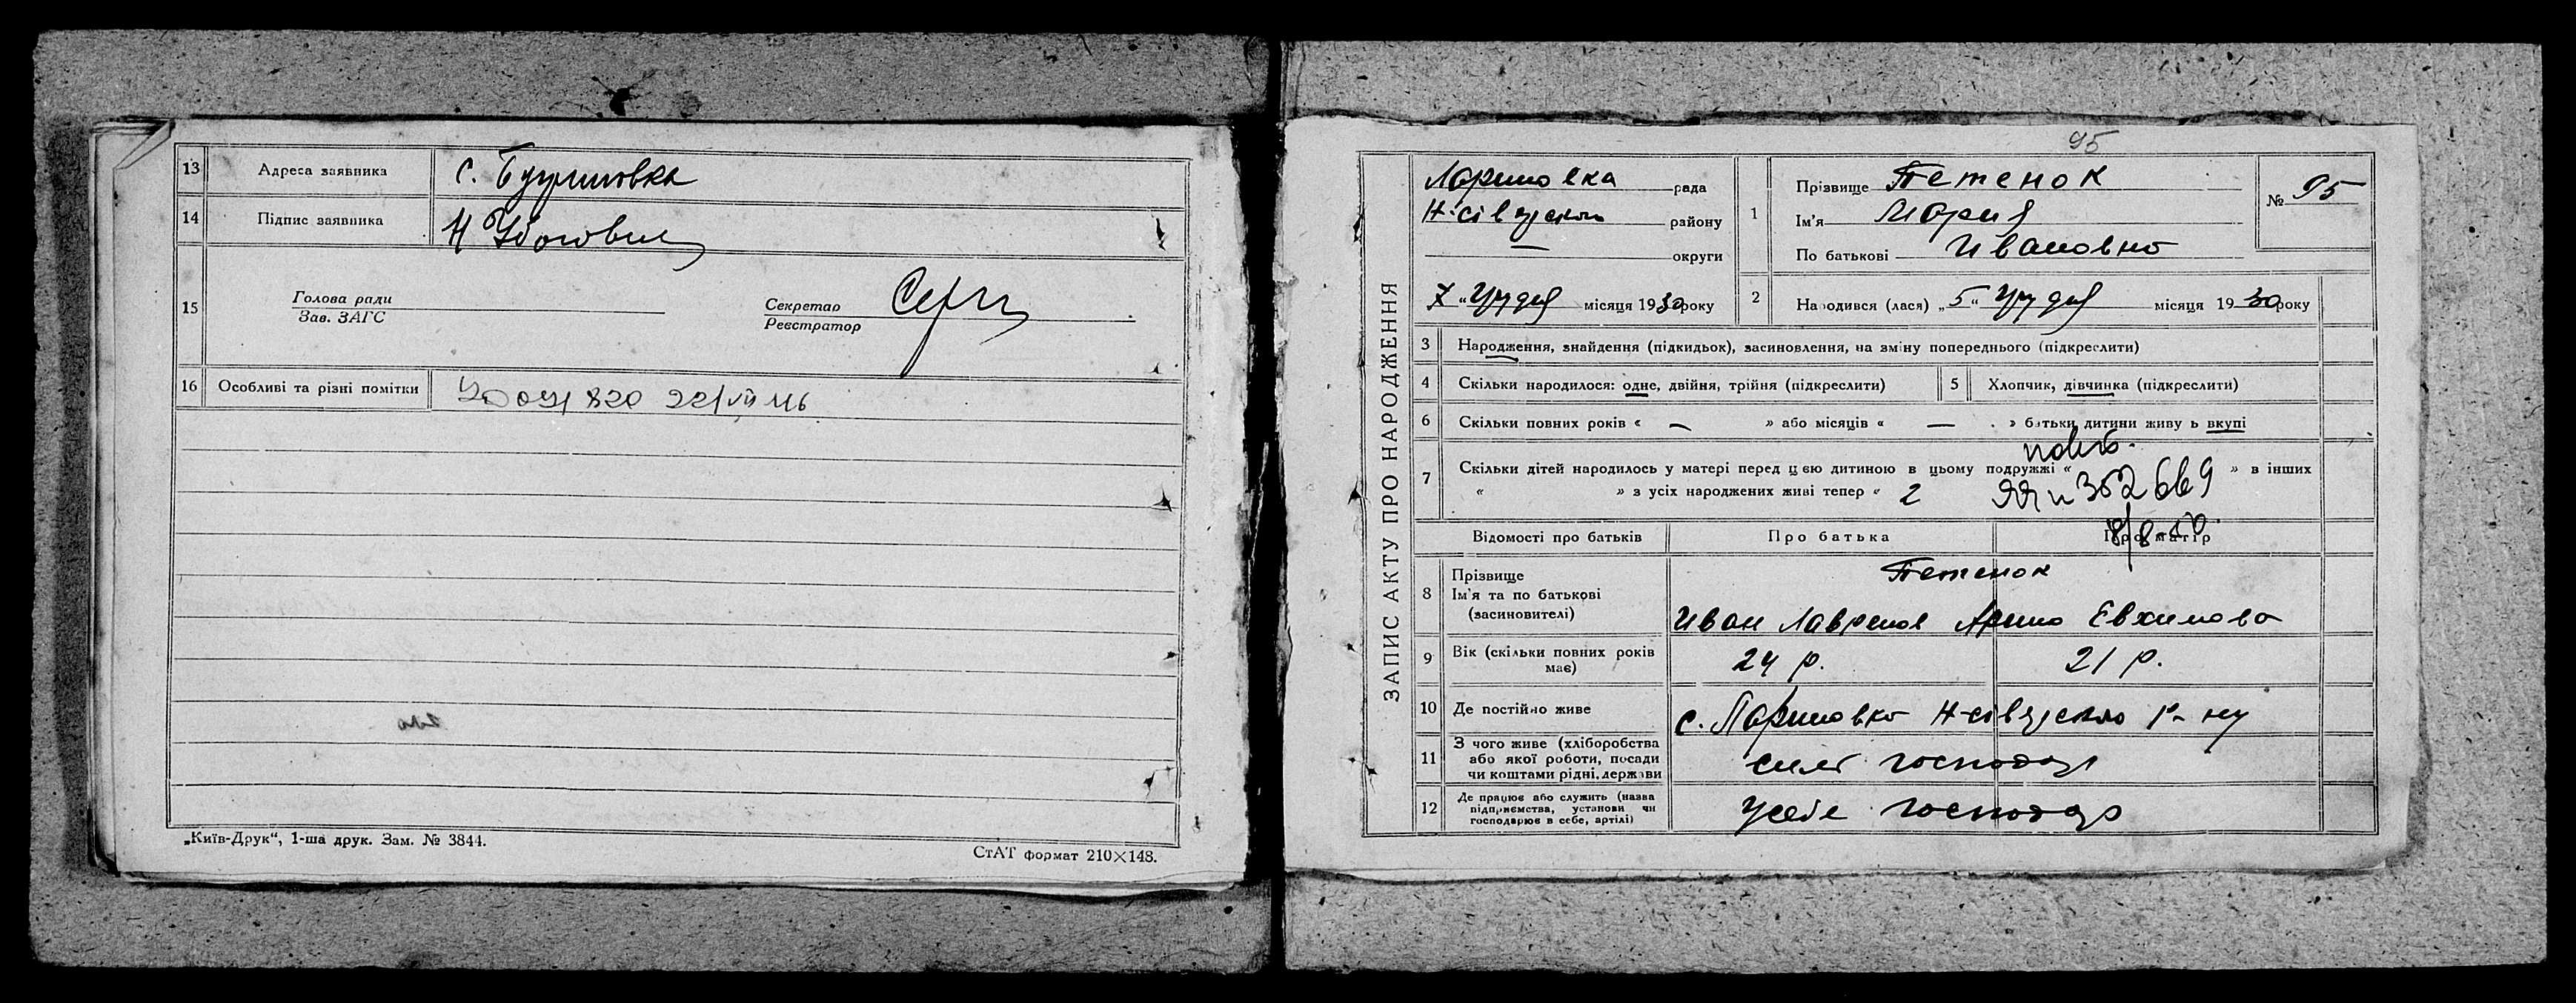 13 Адреса заявника с.
14 Підпис заявника Н
15 Голова ради Секретар
Зав. ЗАГС Реєстратор
16 Особливі та різні помітки 820 22/VII 46
„Київ-Друк“, 1-ша друк. Зам. № 3844.
СтАТ формат 210×148.
95
ЗАПИС АКТУ ПРО НАРОДЖЕННЯ
Лариновка рада
Н-Сіверського району
— округи
7 „Грудня місяця 1930 року
1 Прізвище Петенок
Ім'я Мария
По батькові Ивановна
№ 95
2 Народився (лася) „5“ Грудня місяця 1930 року
3 Народження, знайдення (підкидьок), засиновлення, на зміну попереднього (підкреслити)
4 Скільки народилося: одне, двійня, трійня (підкреслити) 5 Хлопчик, дівчинка (підкреслити)
6 Скільки повних років « — » або місяців « — » батьки дитини живуть вкупі
повт.
7 Скільки дітей народилось у матері перед цією дитиною в цьому подружжі « » в інших
« » з усіх народжених живі тепер « 2 352669
Відомості про батьків Про батька Про матір
8 Прізвище Петенок
Ім'я та по батькові
(засиновителі) Иван Лавренов Арина Евхимова
9 Вік (скільки повних років має) 24 р. 21 р.
10 Де постійно живе с. Лариновка Н-Сіверського р-ну
11 З чого живе (хліборобства
або якої роботи, посади
чи коштами рідні, держави господар
12 Де працює або служить (назва
підприємства, установи чи
господарює в себе, артілі) у себе господар